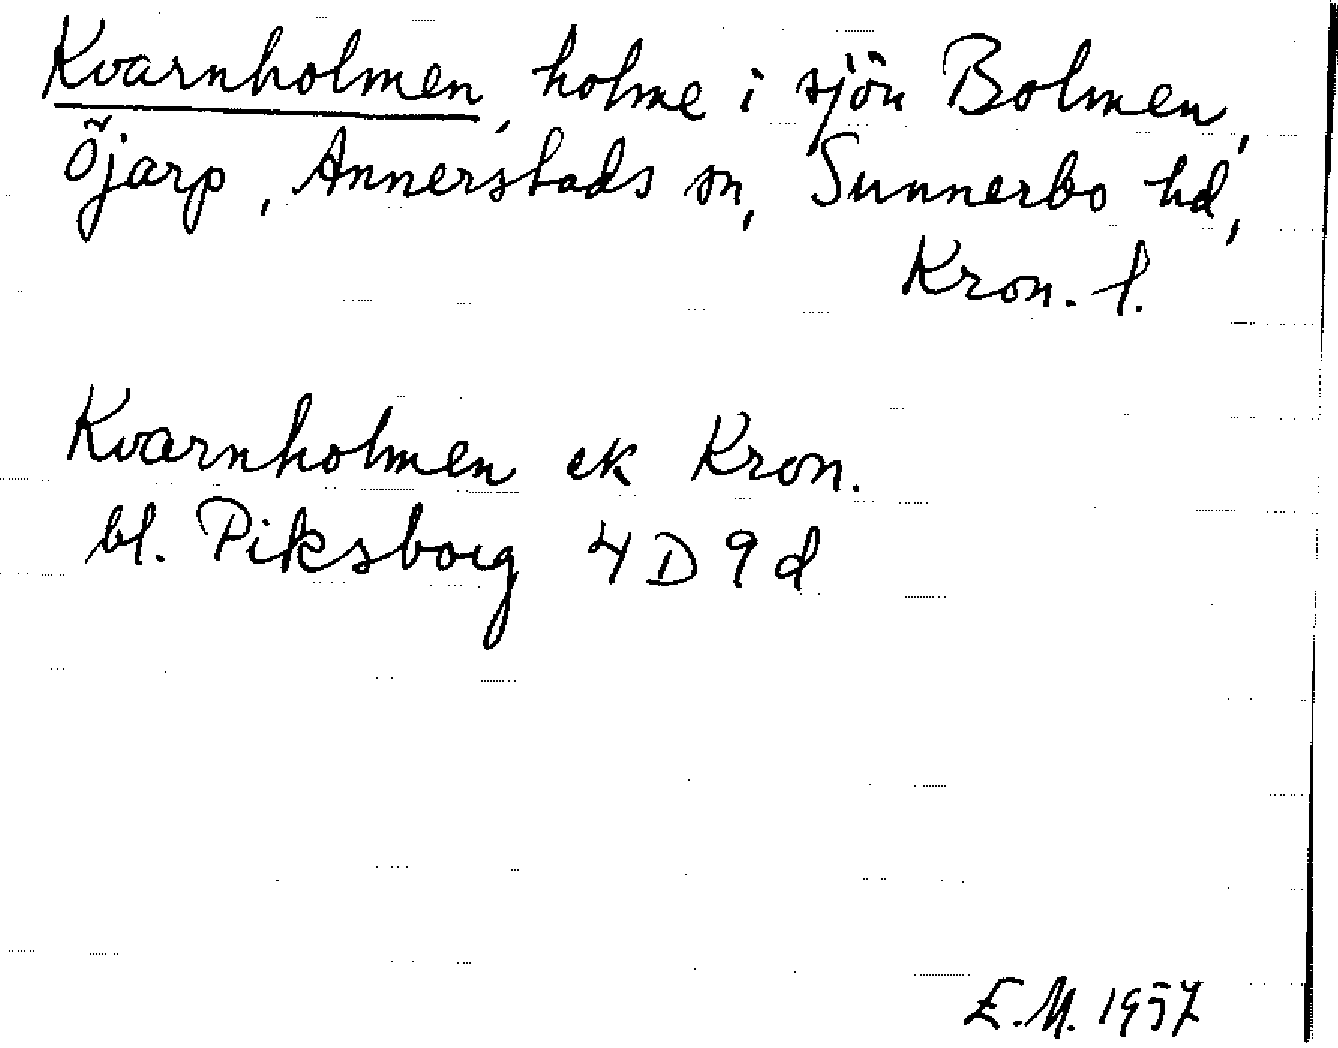 Kvarnholmen, holme i sjön Bolmen,
Öjarp, Annerstads sn, Sunnerbo hd,
Kron. l.
Kvarnholmen ek Kron.
bl. Piksborg 4D 9d
E.M. 1957